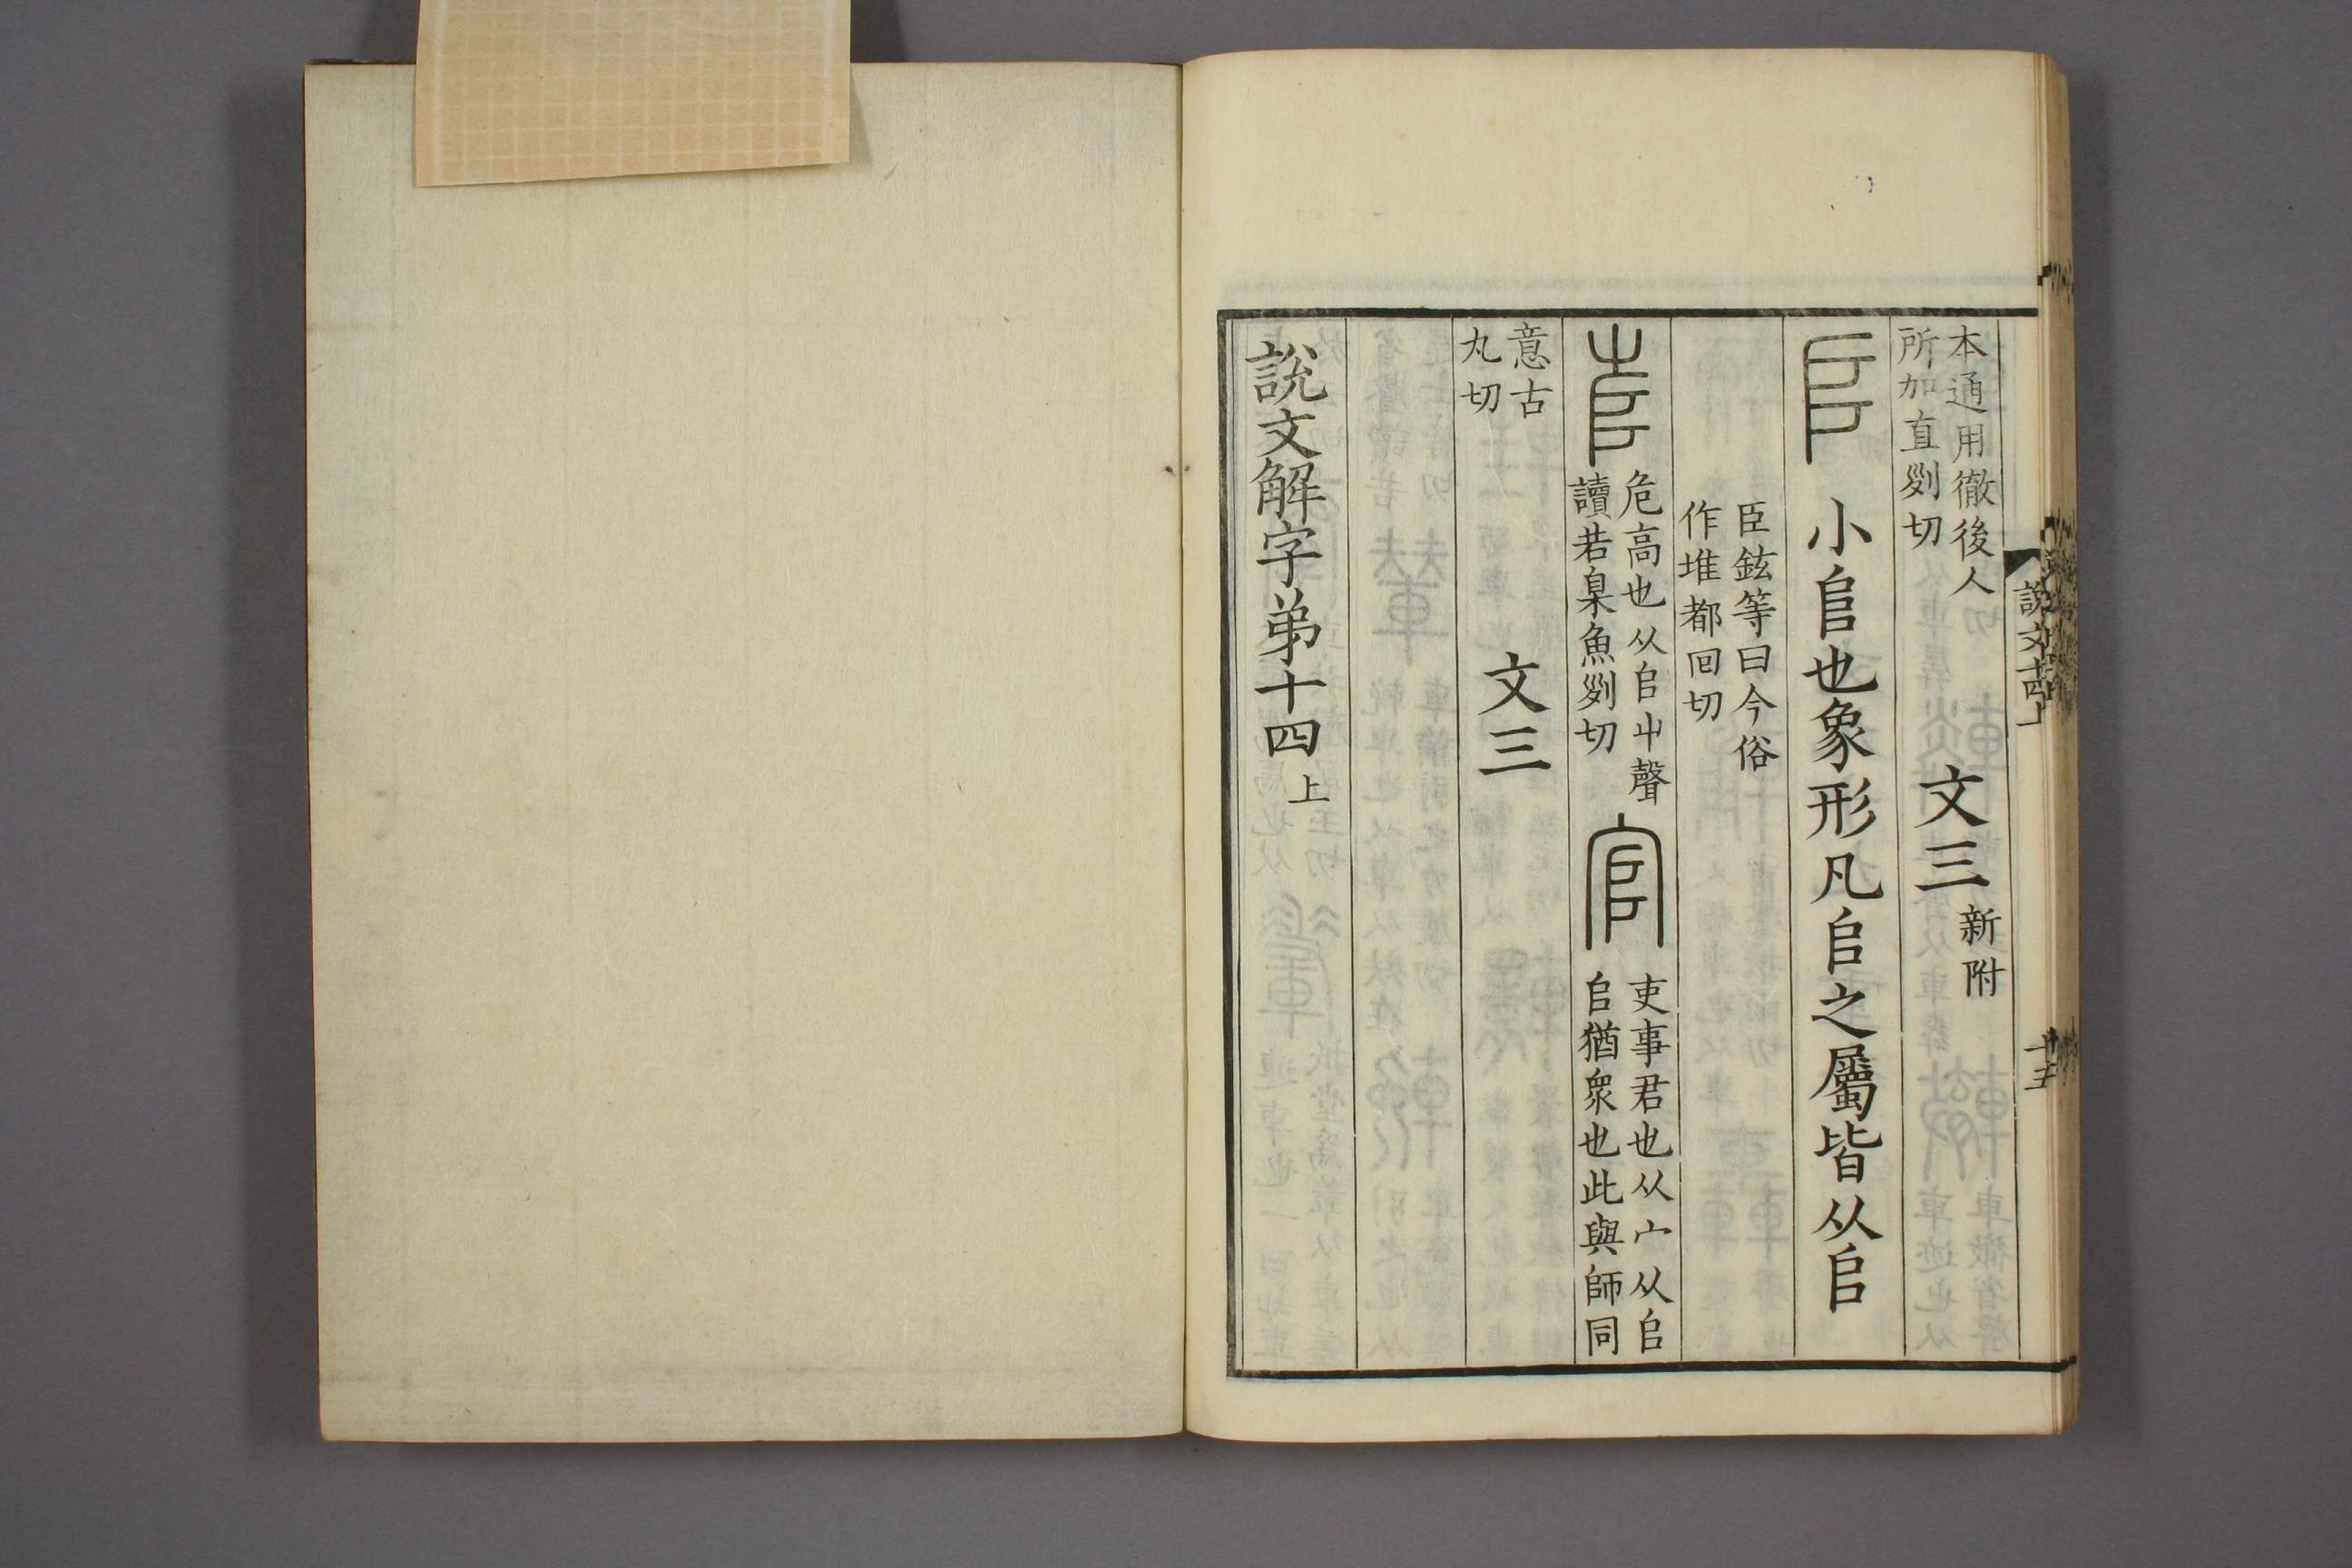 說文十四上
十五
本通用徹後人
所加直列切
文三 新附
𠂤 小𠂤也象形凡𠂤之屬皆从𠂤
臣鉉等曰今俗
作堆都回切
𡴎 危高也从𠂤屮聲
讀若臬魚列切
官 吏事君也从宀从𠂤
𠂤猶眾也此與師同
意古
丸切
文三
說文解字弟十四 上